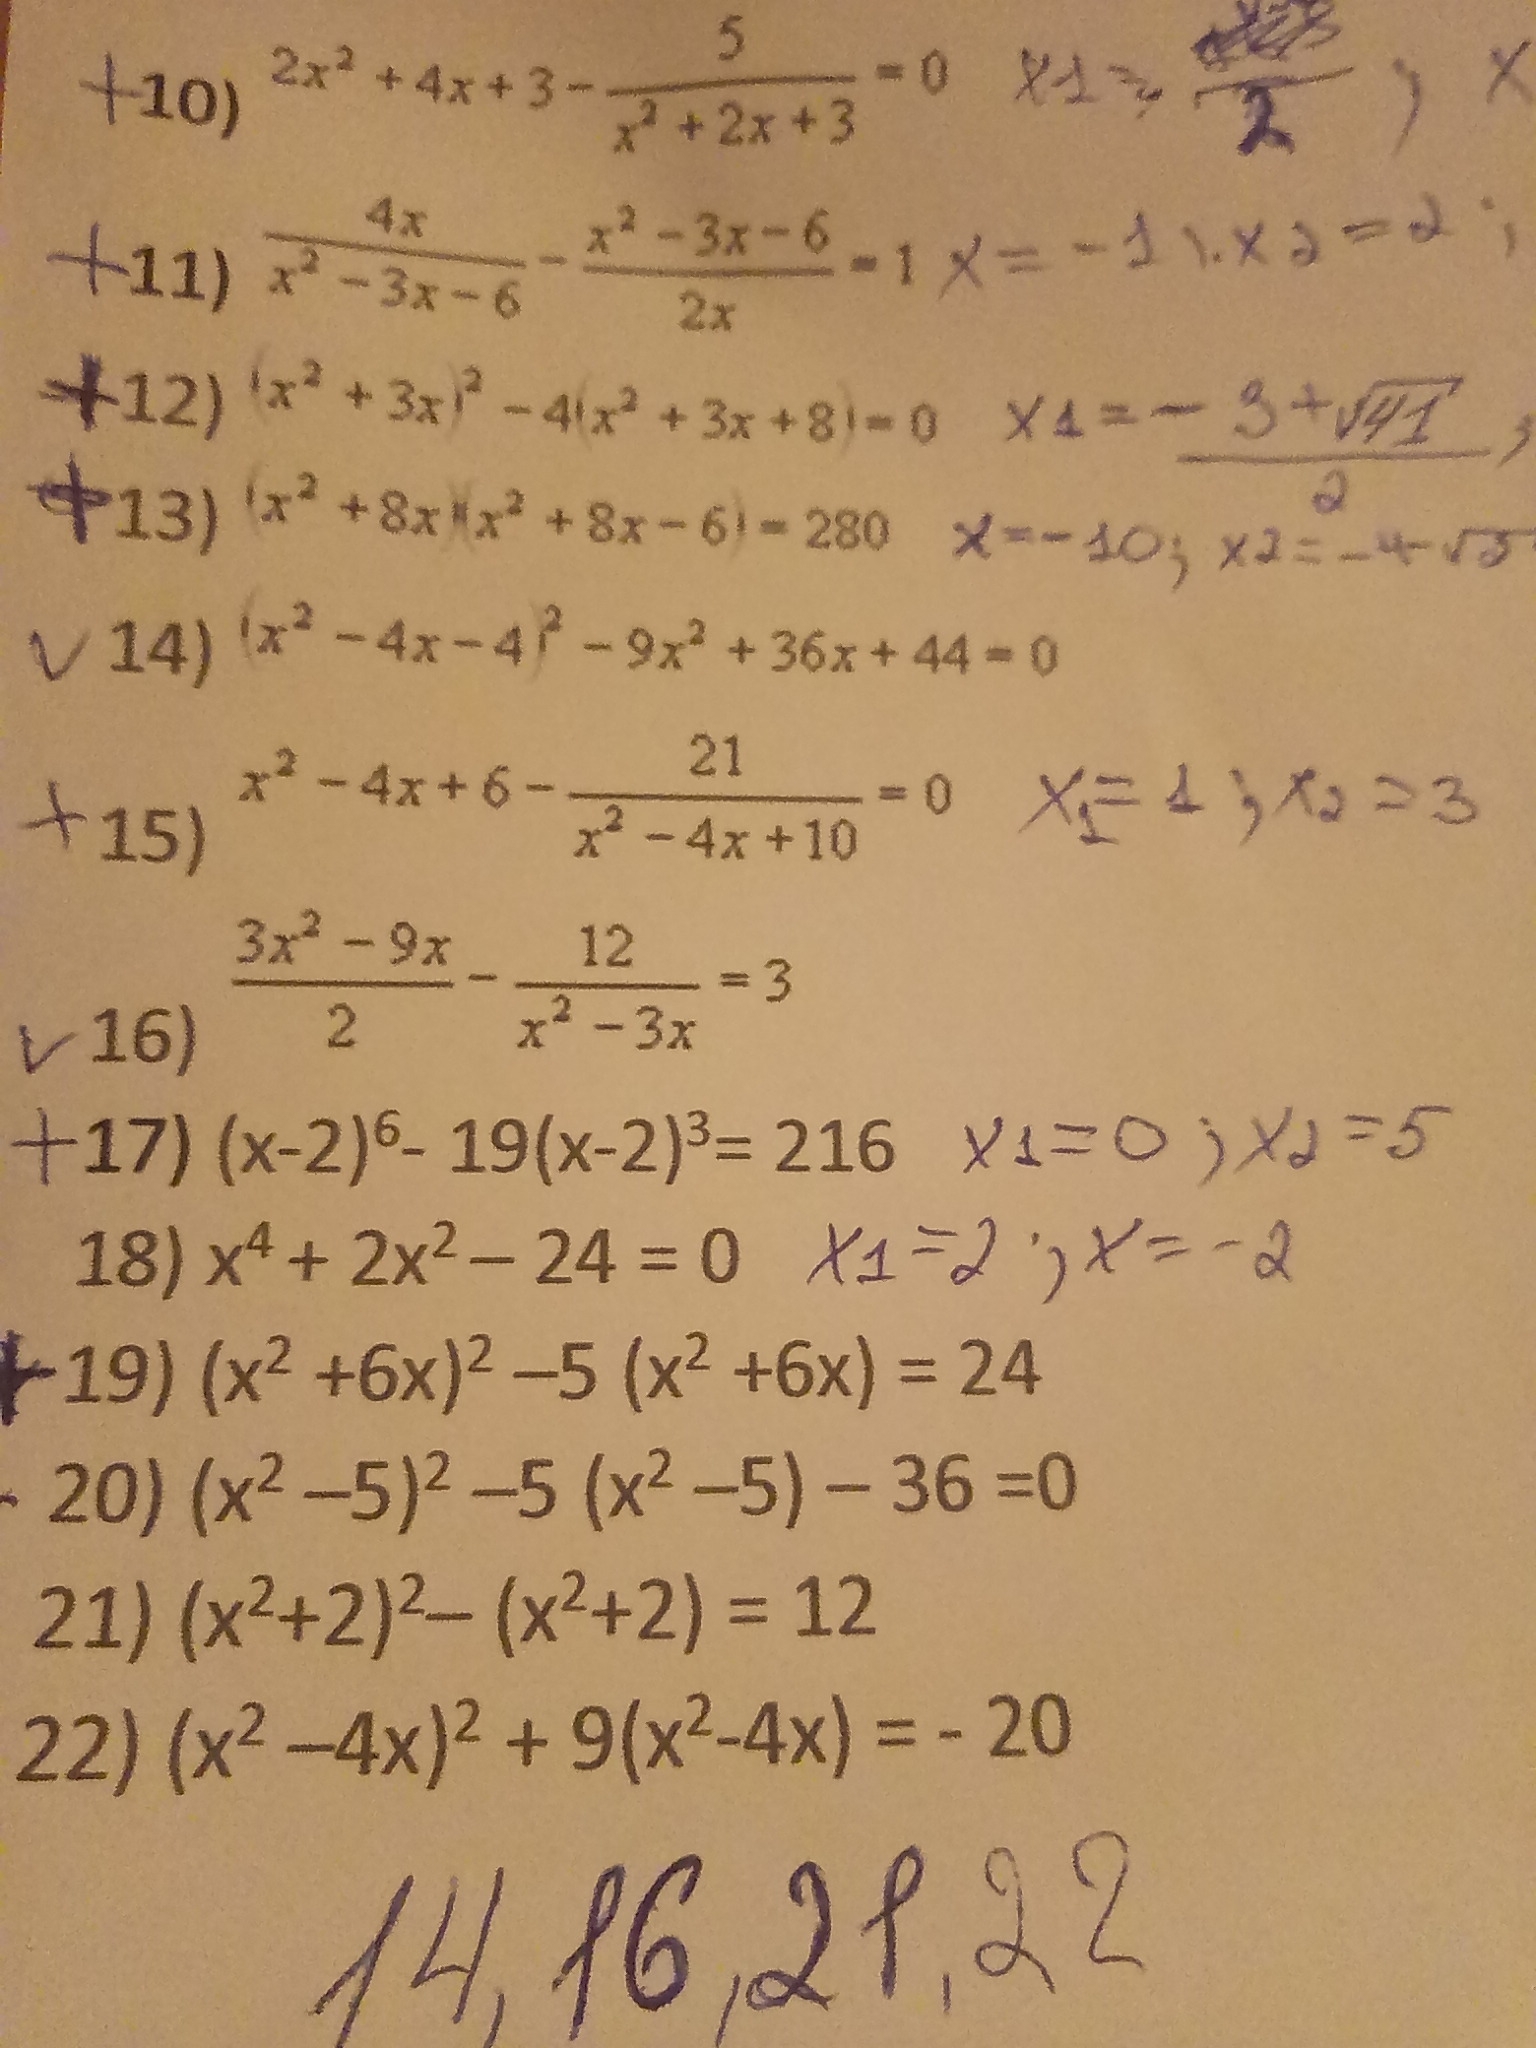 +10) 2x² + 4x + 3 - 5/(x² + 2x + 3) = 0 x1 = /2 ; x
+11) 4x/(x² - 3x - 6) - (x² - 3x - 6)/2x = 1 x = -1 ; x2 = 2 ;
+12) (x² + 3x)² - 4(x² + 3x + 8) = 0 x1 = - 3+√41/2 ;
+13) (x² + 8x)(x² + 8x - 6) = 280 x = -10 ; x2 = -4-√
v 14) (x² - 4x - 4)² - 9x² + 36x + 44 = 0
+15) x² - 4x + 6 - 21/(x² - 4x + 10) = 0 x₁ = 1 ; x₂ = 3
v 16) (3x² - 9x)/2 - 12/(x² - 3x) = 3
+17) (x-2)⁶- 19(x-2)³= 216 x1=0 ; x2=5
18) x⁴ + 2x² – 24 = 0 x1=2 ; x=-2
+19) (x² +6x)² –5 (x² +6x) = 24
- 20) (x² –5)² –5 (x² –5) – 36 =0
21) (x²+2)²– (x²+2) = 12
22) (x² –4x)² + 9(x²-4x) = - 20
14, 16, 21, 22